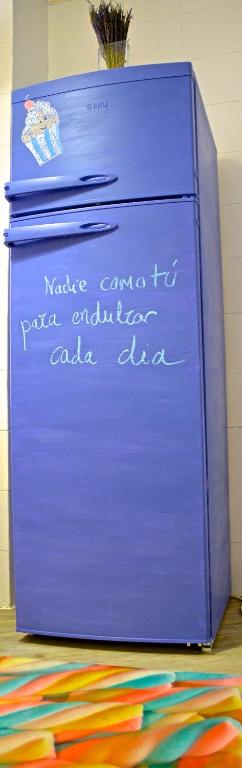 Nadie como tú
para endulzar
cada dia